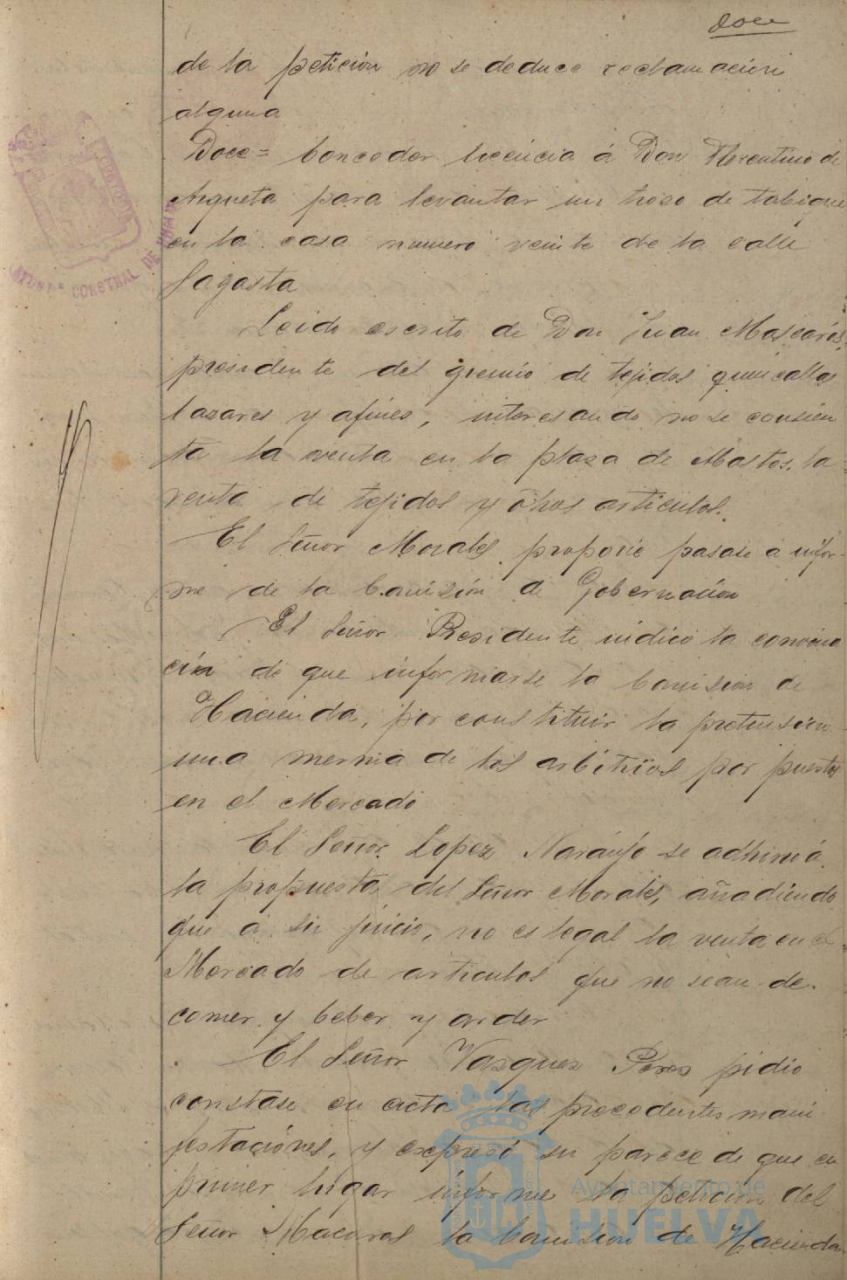 Doce
de la petición no se deduce reclamación
alguna
Doce = Conceder licencia á Don Florentino de
Azqueta para levantar un trozo de tabique
en la casa numero veinte de la calle
Sagasta
Leido escrito de Don Juan Mascarós,
presidente del gremio de tejidos quincallas
bazares y afines, interesando no se consien
ta la venta en la plaza de Abastos, la
venta de tejidos y otros articulos.
El Señor Morales, propone pasase a infor-
me de la Comisión de Gobernación
El Señor Presidente indicó la convenien
cia de que informase la Comisión de
Hacienda, por constituir la pretensión
una merma de los arbitrios por puestos
en el Mercado
El Señor Lopez Naranjo se adhirió á
la propuesta del Señor Morales, añadiendo
que á su juicio, no es legal la venta en el
Mercado de articulos que no sean de
comer y beber y arder
El Señor Vazquez Perez pidio
constase en acta las precedentes mani
festaciónes, y expresó su parece de que en
primer lugar informe la petición del
Señor Macaros la Comisión de Hacienda
AYUNTº CONSTNAL DE HUELVA
Ayuntamiento de
HUELVA